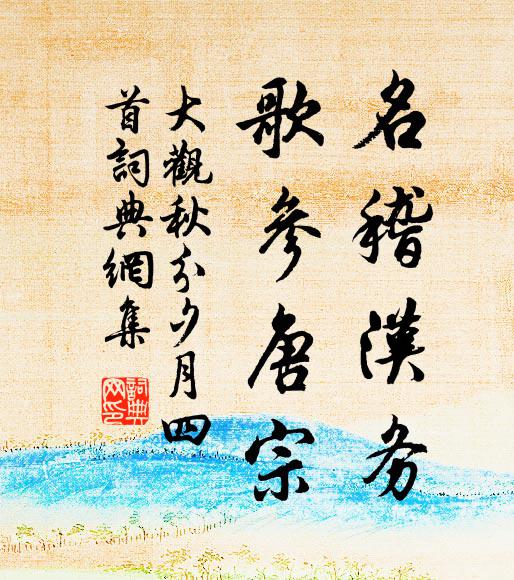 名稽漢务
歌參唐宗
大觀秋分夕月四
首詞典網集
詞典
网印